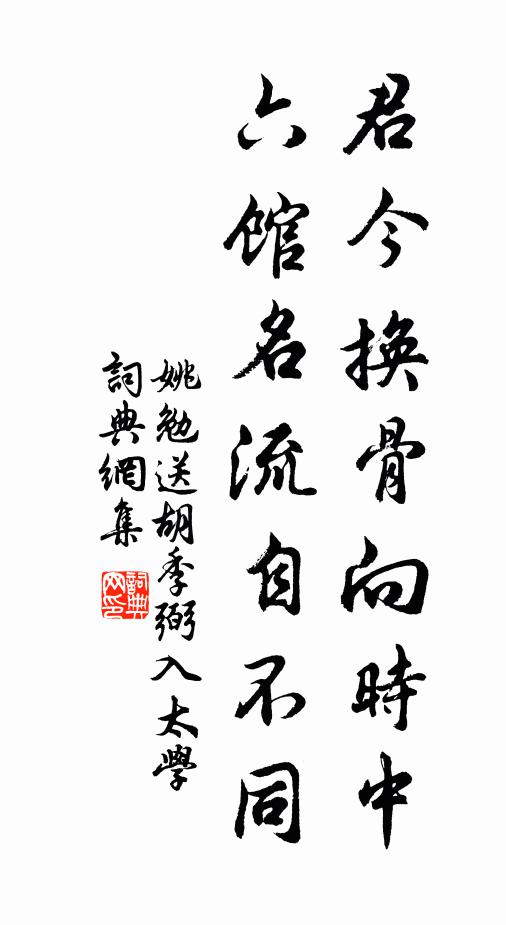 君今換骨向時中
六館名流自不同
姚勉送胡季弼入太學
詞典網集
詞典网印